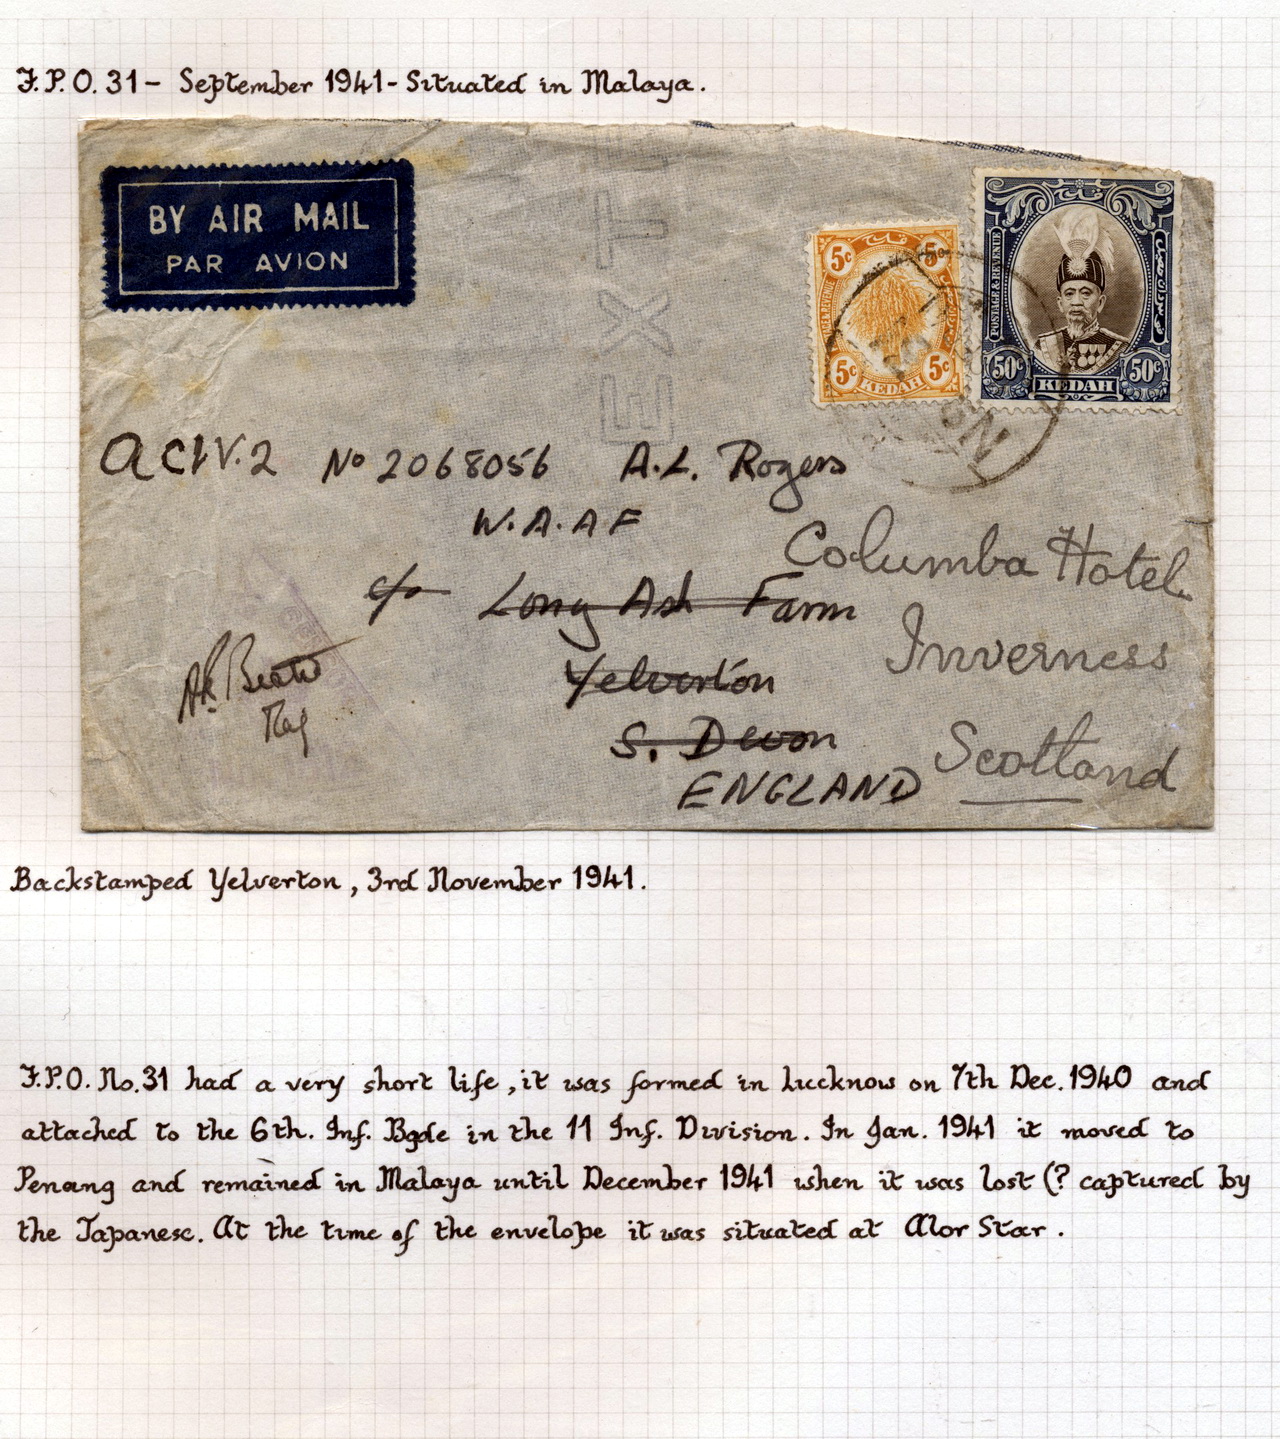 F.P.O. 31 - September 1941 - Situated in Malaya.
BY AIR MAIL
PAR AVION
5c 5c
5c 5c
KEDAH
POSTAGE & REVENUE
50c 50c
KEDAH
ACW.2 No 2068056 A.L. Rogers
W.A.A F
c/o Long Ash Farm
Yelverton
S. Devon
ENGLAND
Columba Hotel
Inverness
Scotland
Backstamped Yelverton, 3rd November 1941.
F.P.O. No.31 had a very short life, it was formed in Lucknow on 7th Dec. 1940 and
attached to the 6th. Inf. Bgde in the 11 Inf. Division. In Jan. 1941 it moved to
Penang and remained in Malaya until December 1941 when it was lost (? captured by
the Japanese. At the time of the envelope it was situated at Alor Star.